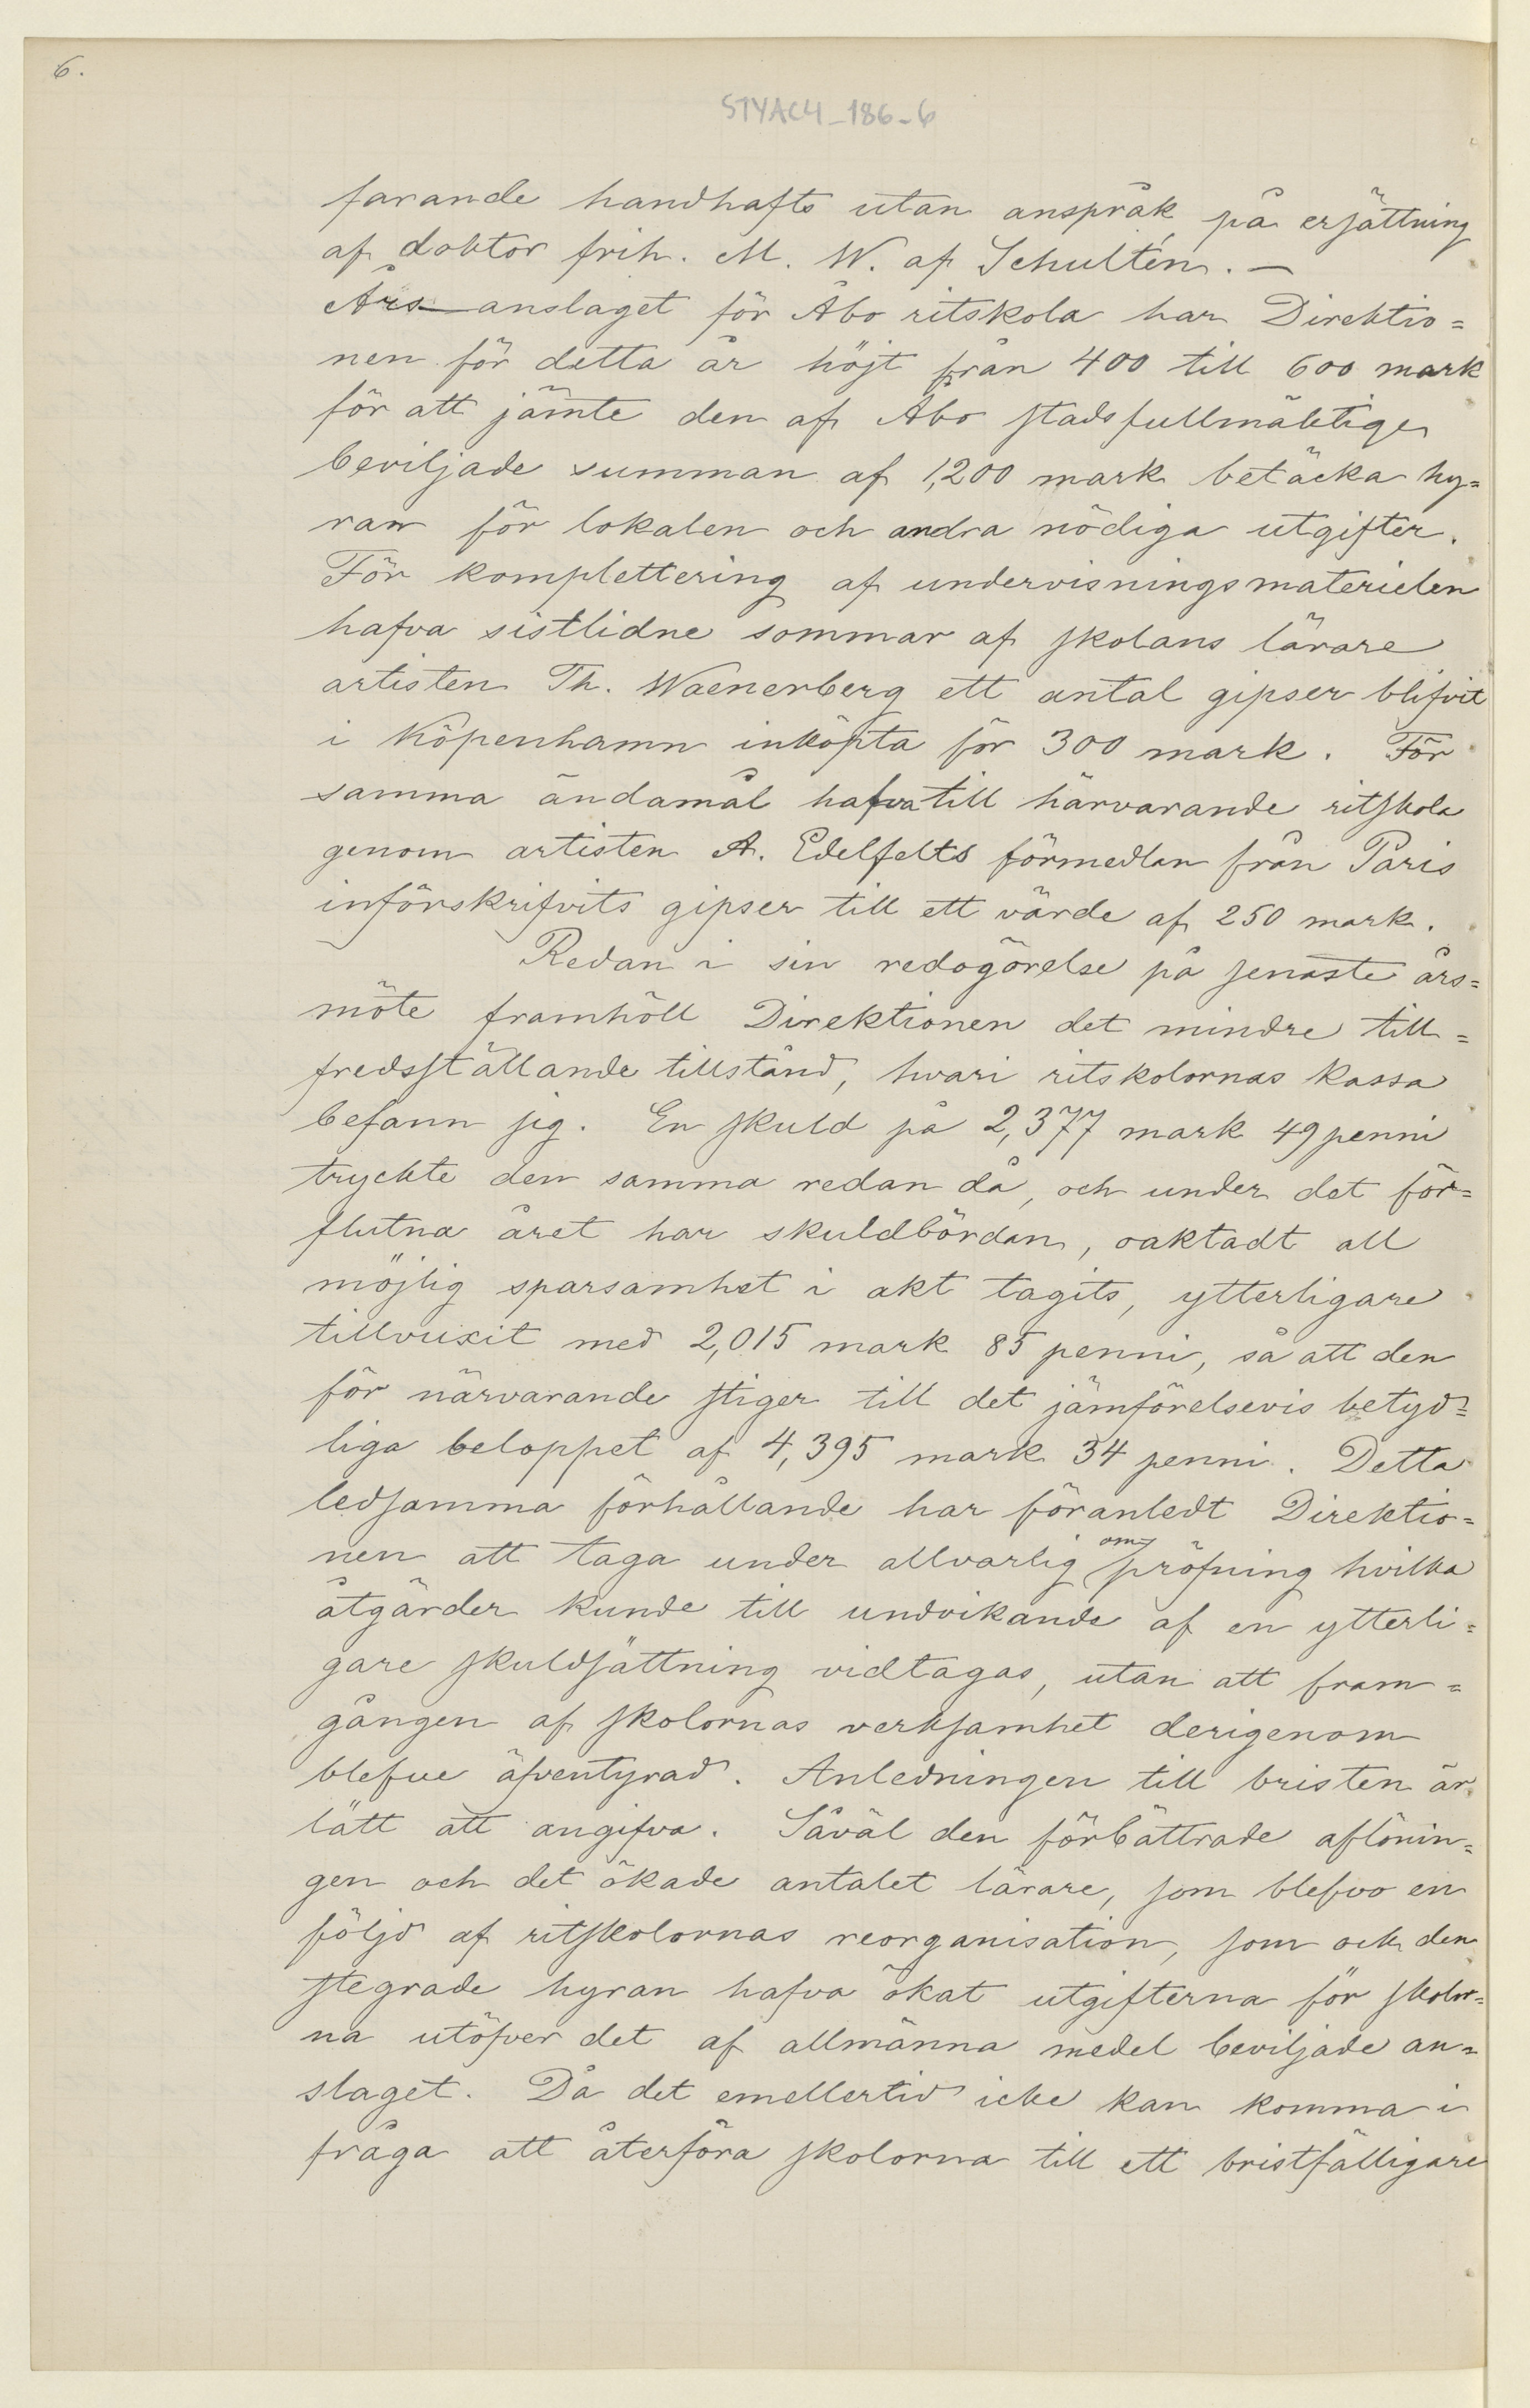 6.
STYAC4_186-6
farande handhafts utan anspråk på ersättning
af doktor frih. M. W. af Schultén. —
Års anslaget för Åbo ritskola har Direktio=
nen för detta år höjt från 400 till 600 mark
för att jämte den af Åbo stadsfullmäktige
beviljade summan af 1,200 mark betäcka hy=
ran för lokalen och andra nödiga utgifter.
För komplettering af undervisningsmaterielen
hafva sistlidne sommar af skolans lärare
artisten Th. Waenerberg ett antal gipser blifvit
i Köpenhamn inköpta för 300 mark. För
samma ändamål hafva till härvarande ritskola
genom artisten A. Edelfelts förmedlan från Paris
införskrifvits gipser till ett värde af 250 mark.
Redan i sin redogörelse på senaste års=
möte framhöll Direktionen det mindre till=
fredsställande tillstånd, hvari ritskolornas kassa
befann sig. En skuld på 2,377 mark 49 penni
tryckte den samma redan då, och under det för=
flutna året har skuldbördan, oaktadt all
möjlig sparsamhet i akt tagits, ytterligare
tillvuxit med 2,015 mark 85 penni, så att den
för närvarande stiger till det jämförelsevis betyd=
liga beloppet af 4,395 mark 34 penni. Detta
ledsamma förhållande har föranledt Direktio=
nen att taga under allvarlig ompröfning hvilka
åtgärder kunde till undvikande af en ytterli=
gare skuldsättning vidtagas, utan att fram=
gången af skolornas verksamhet derigenom
blefve äfventyrad. Anledningen till bristen är
lätt att angifva. Såväl den förbättrade aflönin=
gen och det ökade antalet lärare, som blefvo en
följd af ritskolornas reorganisation, som ock den
stegrade hyran hafva ökat utgifterna för skolor=
na utöfver det af allmänna medel beviljade an=
slaget. Då det emellertid icke kan komma i
fråga att återföra skolorna till ett bristfälligare